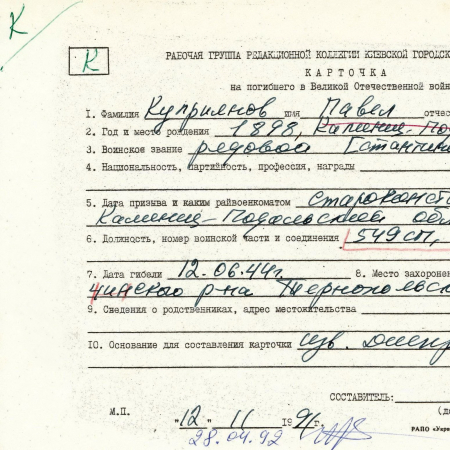 К
К
РАБОЧАЯ ГРУППА РЕДАКЦИОННОЙ КОЛЛЕГИИ КИЕВСКОЙ ГОРОДСК
КАРТОЧКА
на погибшего в Великой Отечественной войн
1. Фамилия Куприянов имя Павел отчес
2. Год и место рождения 1898, Каменец-По
3. Воинское звание редовой
4. Национальность, партийность, профессия, награды
5. Дата призыва и каким райвоенкоматом Староконст
Каменец-Подольской обл
6. Должность, номер воинской части и соединения 549 сп,
7. Дата гибели 12.06.44г. 8. Место захорон
нинского р-на Тернопольс
9. Сведения о родственниках, адрес местожительства
10. Основание для составления карточки изв. Днепр
СОСТАВИТЕЛЬ:
М.П. "12" 11 1991г. (до
28.04.92 РАПО «Укр